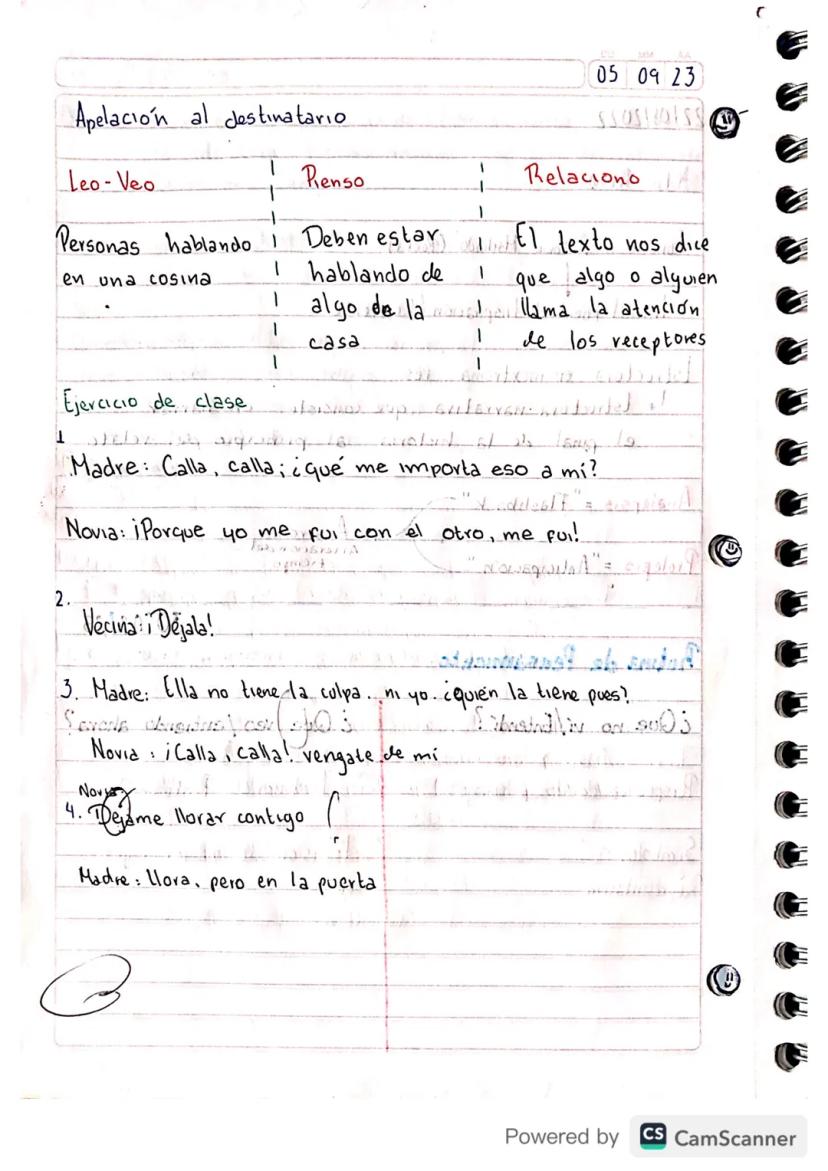 DD MM AA
05 09 23
Apelación al destinatario
Leo-Veo Pienso Relaciono
Personas hablando Deben estar El texto nos dice
en una cosina hablando de que algo o alguien
algo de la llama la atención
casa de los receptores
Ejercicio de clase
1
Madre: Calla, calla; ¿qué me importa eso a mí?
Novia: ¡Porque yo me fui con el otro, me fui!
2.
Vecina: ¡Déjala!
3. Madre: Ella no tiene la culpa. ni yo. ¿quién la tiene pues?
Novia: ¡Calla, calla! vengate de mí
Novia
4. Dejame llorar contigo
Madre: llora, pero en la puerta
Powered by CS CamScanner